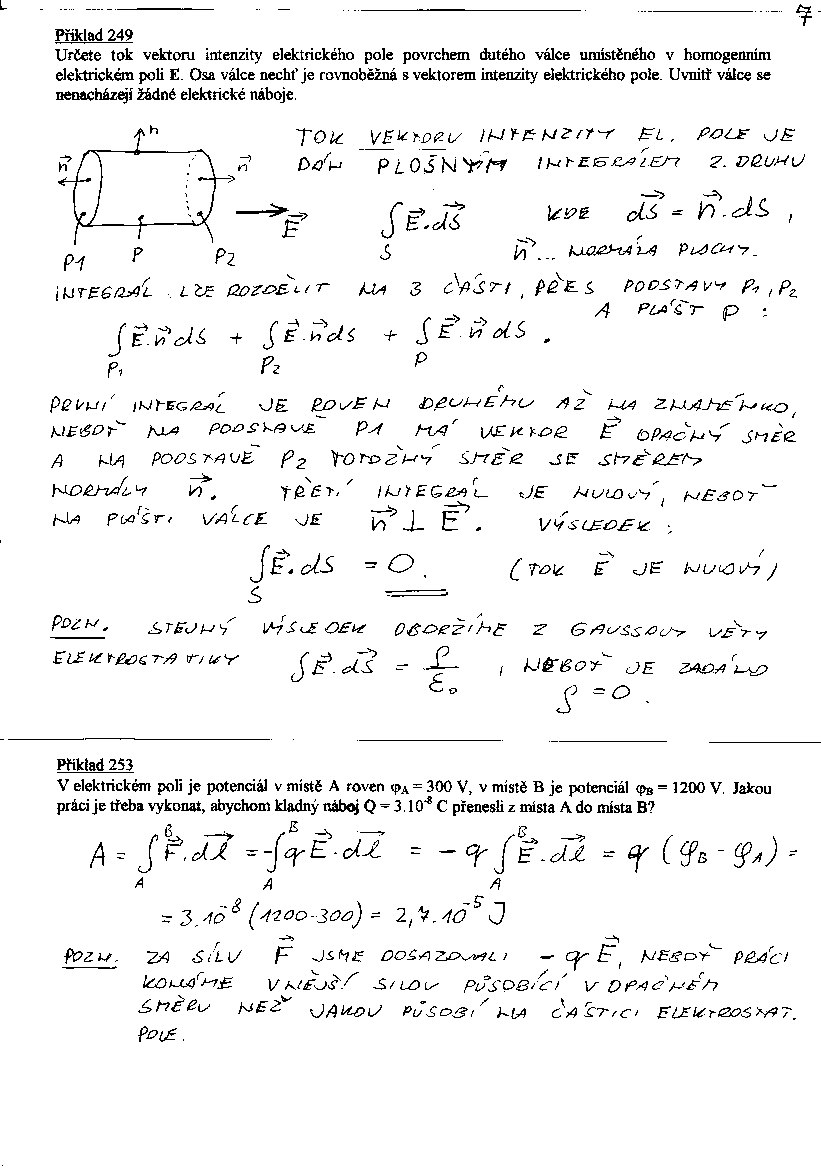 7
Příklad 249
Určete tok vektoru intenzity elektrického pole povrchem dutého válce umístěného v homogenním
elektrickém poli E. Osa válce nechť je rovnoběžná s vektorem intenzity elektrického pole. Uvnitř válce se
nenacházejí žádné elektrické náboje.
n
n⃗ n⃗ E⃗
P1 P P2
TOK VEKTORU INTENZITY EL. POLE JE
DÁN PLOŠNÝM INTEGRÁLEM 2. DRUHU
∫_S E⃗.dS⃗ KDE dS⃗ = n⃗.dS ,
n⃗... NORMÁLA PLOCHY.
INTEGRÁL LZE ROZDĚLIT NA 3 ČÁSTI, PŘES PODSTAVY P1, P2
A PLÁŠT P :
∫_P1 E⃗.n⃗dS + ∫_P2 E⃗.n⃗dS + ∫_P E⃗.n⃗dS .
PRVNÍ INTEGRÁL JE ROVEN DRUHÉMU AŽ NA ZNAMÉNKO,
NEBOŤ NA PODSTAVĚ P1 MÁ VEKTOR E⃗ OPAČNÝ SMĚR
A NA PODSTAVĚ P2 TOTOŽNÝ SMĚR SE SMĚREM
NORMÁLY n⃗. TŘETÍ INTEGRÁL JE NULOVÝ, NEBOŤ
NA PLÁŠTI VÁLCE JE n⃗ ⊥ E⃗. VÝSLEDEK :
∫_S E⃗.dS = 0. (TOK E⃗ JE NULOVÝ)
POZN. STEJNÝ VÝSLEDEK OBDRŽÍME Z GAUSSOVY VĚTY
ELEKTROSTATIKY ∫E⃗.dS⃗ = ρ/ε₀ , NEBOŤ JE ZADÁNO
ρ = 0 .
Příklad 253
V elektrickém poli je potenciál v místě A roven φA = 300 V, v místě B je potenciál φB = 1200 V. Jakou
práci je třeba vykonat, abychom kladný náboj Q = 3.10⁻⁸ C přenesli z místa A do místa B?
A = ∫_A^B F⃗.dl⃗ = -∫_A^B qE⃗.dl⃗ = -q ∫_A^B E⃗.dl⃗ = q (φB - φA) =
= 3.10⁻⁸ (1200-300) = 2,7.10⁻⁵ J
POZN. ZA SÍLU F⃗ JSME DOSAZOVALI - qE⃗, NEBOŤ PRÁCI
KONÁME VNĚJŠÍ SILOU PŮSOBÍCÍ V OPAČNÉM
SMĚRU NEŽ JAKOU PŮSOBÍ NA ČÁSTICI ELEKTROSTAT.
POLE.